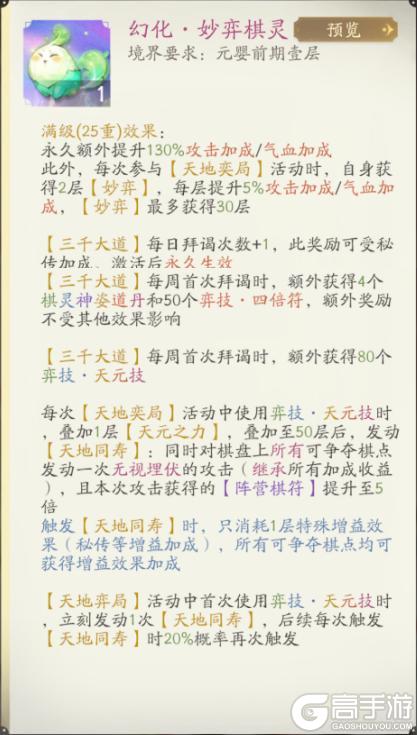 幻化·妙弈棋灵
预览
境界要求：元婴前期壹层
1
满级(25重)效果：
永久额外提升130%攻击加成/气血加成
此外，每次参与【天地奕局】活动时，自身获
得2层【妙弈】，每层提升5%攻击加成/气血加
成，【妙弈】最多获得30层
【三千大道】每日拜谒次数+1，此奖励可受秘
传加成，激活后永久生效
【三千大道】每周首次拜谒时，额外获得4个
棋灵神姿道丹和50个弈技·四倍符，额外奖励
不受其他效果影响
【三千大道】每周首次拜谒时，额外获得80个
弈技·天元技
每次【天地奕局】活动中使用弈技·天元技时
，叠加1层【天元之力】，叠加至50层后，发动
【天地同寿】：同时对棋盘上所有可争夺棋点
发动一次无视埋伏的攻击（继承所有加成收益
），且本次攻击获得的【阵营棋符】提升至5
倍
触发【天地同寿】时，只消耗1层特殊增益效
果（秘传等增益加成），所有可争夺棋点均可
获得增益效果加成
【天地弈局】活动中首次使用弈技·天元技时
，立刻发动1次【天地同寿】，后续每次触发
【天地同寿】时20%概率再次触发
高手游
GAOSHOUYOU.COM